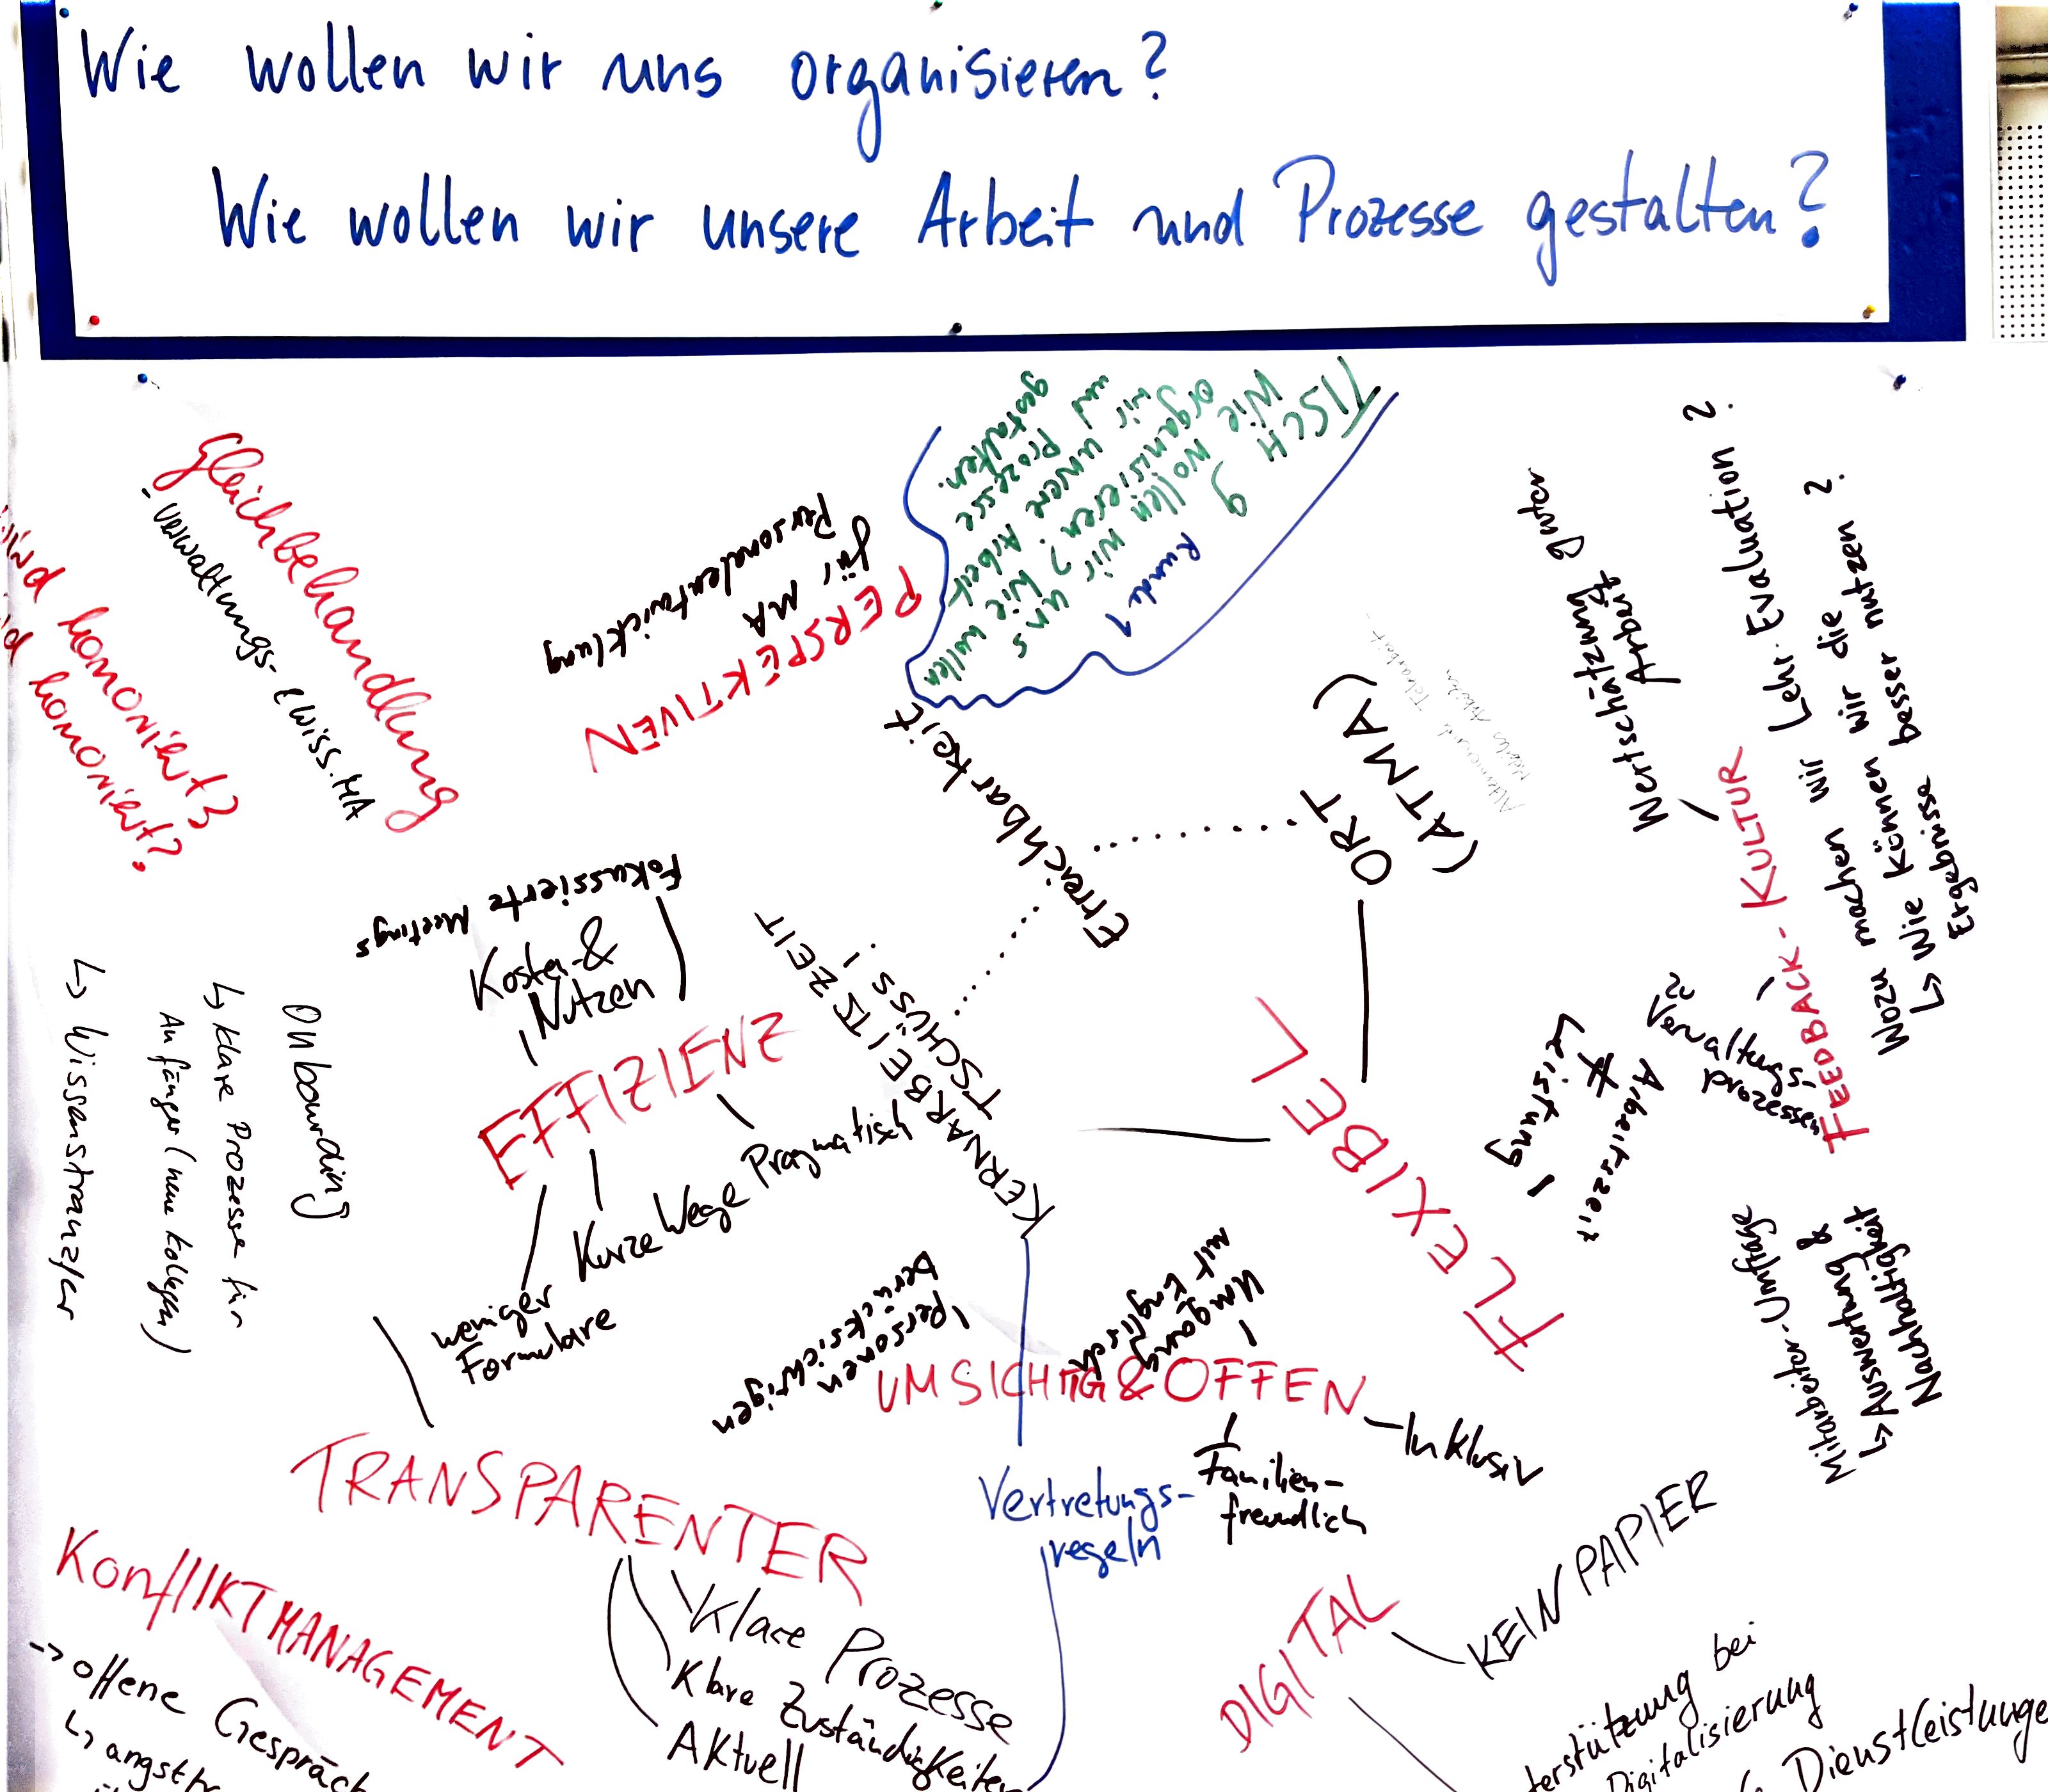 Wie wollen wir uns organisieren?
Wie wollen wir unsere Arbeit und Prozesse gestalten?
TISCH 9
Wie wollen wir uns
organisieren? Wie wollen
wir unsere Arbeit
und Prozesse
gestalten.
Runde 1
Gleichbehandlung
verwaltungs- & wiss. MA
honoriert?
honoriert?
PERSPEKTIVEN
für MA
Personalentwicklung
Erreichbarkeit
ORT
(ATMA)
Alternierende Telearbeit
Mobiles Arbeiten
Wertschätzung guter
Arbeit
FEEDBACK-KULTUR
Wozu machen wir Lehr. Evaluation ?
↳ Wie können wir die ?
Ergebnisse besser nutzen
Verwaltungs-
prozesse
Arbeitszeit
≠
Leistung
!
Mitarbeiter-Umfrage
↳ Auswertung &
Nachhaltigkeit
Fokussierte Meetings
Kosten &
Nutzen
EFFIZIENZ
Pragmatisch
Kurze Wege
weniger
Formulare
KERNARBEITSZEIT
TSCHÜSS!
FLEXIBEL
Onboarding
↳ klare Prozesse für
Anfänger (neue Kollegen)
↳ Wissenstransfer
personen
berücksichtigen
Umgang
mit Englisch
UMSICHTIG & OFFEN
Inklusiv
Familien-
freundlich
Vertretungs-
regeln
TRANSPARENTER
Klare Prozesse
Klare Zuständigkeiten
Aktuell
KonflIKTMANAGEMENT
→ offene Gespräch
↳ angstfr
DIGITAL
KEIN PAPIER
terstützung bei
Digitalisierung
Dienstleistunge